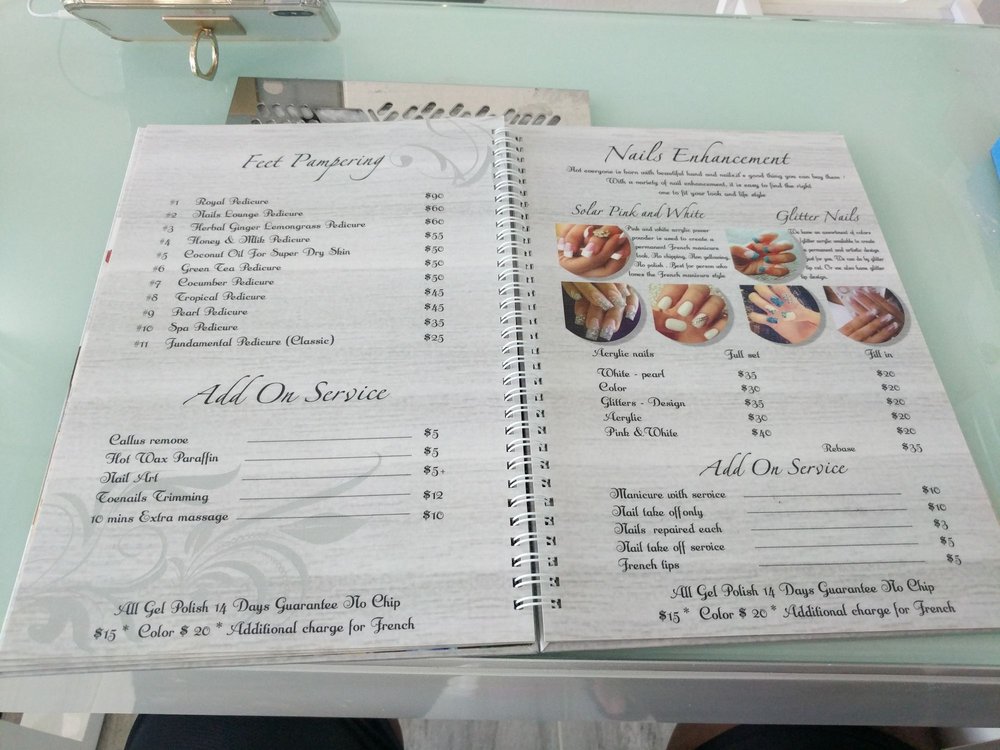 Feet Pampering
#1 Royal Pedicure $90
#2 Nails Lounge Pedicure $60
#3 Herbal Ginger Lemongrass Pedicure $60
#4 Honey & Milk Pedicure $55
#5 Coconut Oil For Super Dry Skin $50
#6 Green Tea Pedicure $50
#7 Cocumber Pedicure $50
#8 Tropical Pedicure $45
#9 Pearl Pedicure $45
#10 Spa Pedicure $35
#11 Fundamental Pedicure (Classic) $25
Add On Service
Callus remove $5
Hot Wax Paraffin $5
Nail Art $5+
Toenails Trimming $12
10 mins Extra massage $10
All Gel Polish 14 Days Guarantee No Chip
$15 * Color $ 20 * Additional charge for French
Nails Enhancement
Not everyone is born with beautiful hand and nails,it's good thing you can buy them !
With a variety of nail enhancement, it is easy to find the right
one to fit your look and life style
Solar Pink and White
Pink and white acrylic power
powder is used to create a
permanent French manicure
look. No chipping. Non yellowing.
No polish . Best for person who
loves the French manicure style
Glitter Nails
We have an assortment of colors
glitter acrylic available to create
a permanent and artistic design
just for you. We can do by glitter
tip cut. Or we also have glitter
tip design.
Acrylic nails Full set Fill in
White - pearl $35 $20
Color $30 $20
Glitters - Design $35 $20
Acrylic $30 $20
Pink & White $40 $20
Rebase $35
Add On Service
Manicure with service $10
Nail take off only $10
Nails repaired each $3
Nail take off service $5
French tips $5
All Gel Polish 14 Days Guarantee No Chip
$15 * Color $ 20 * Additional charge for French